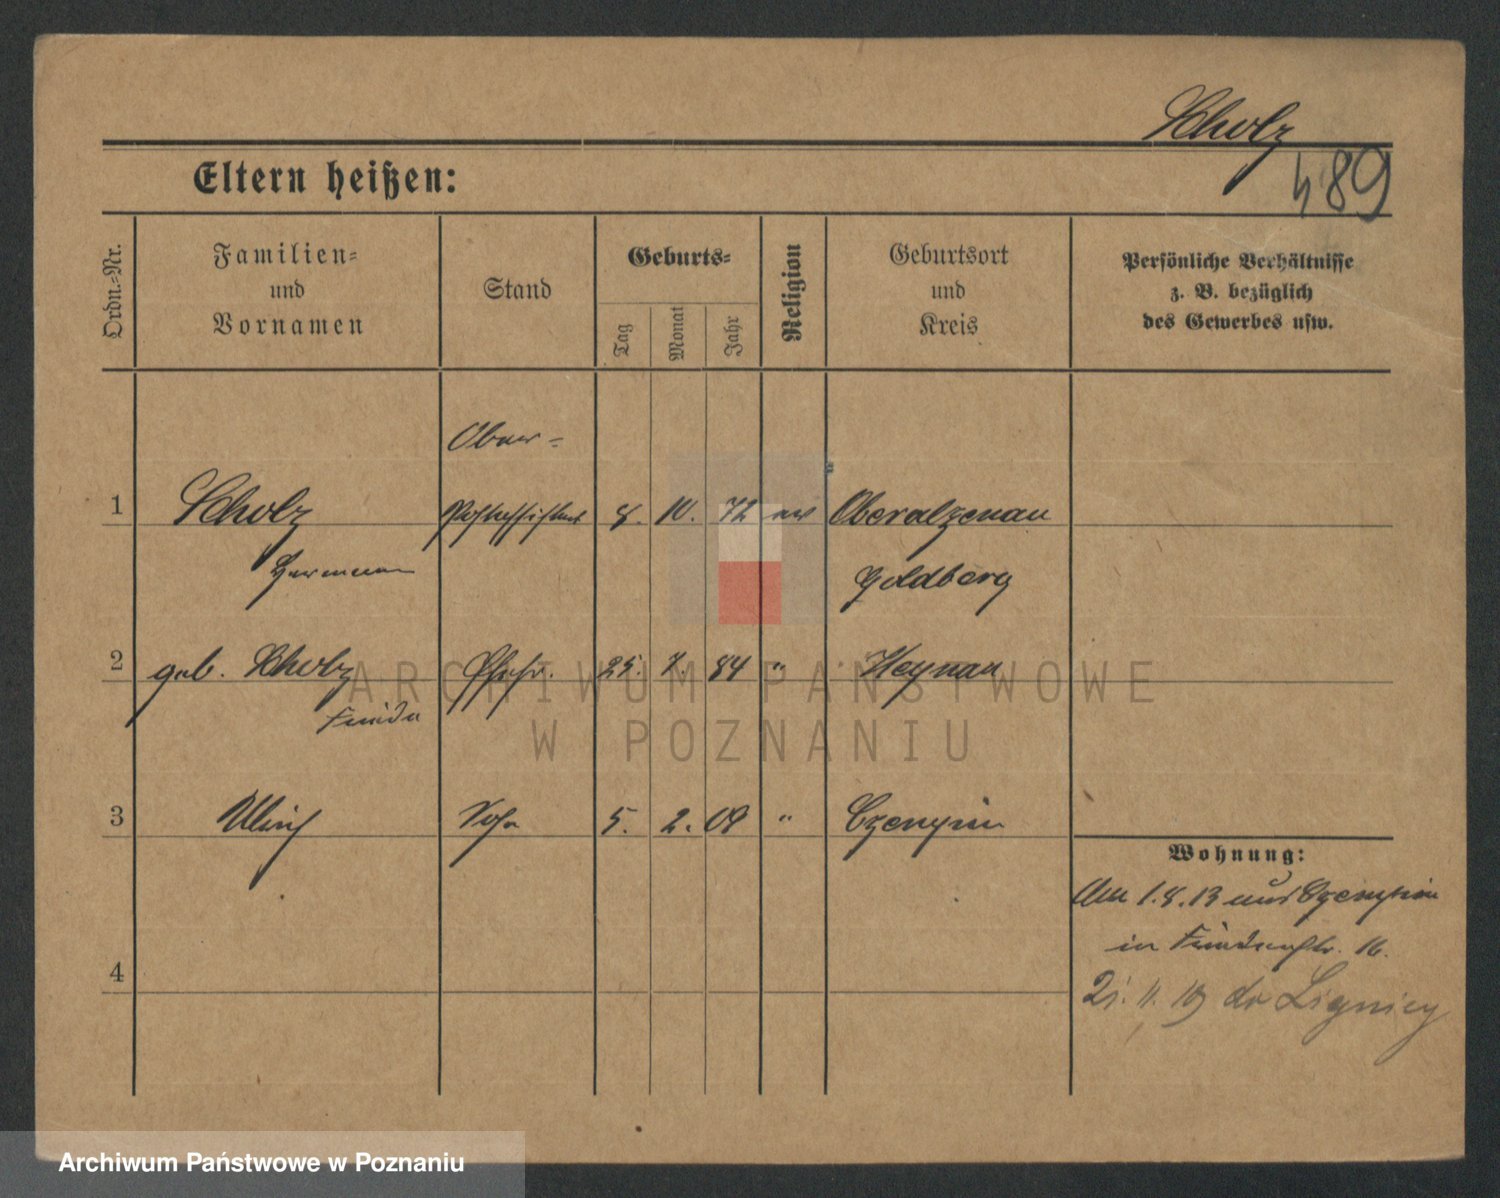 Scholz
489
Eltern heißen:
Ordn.=Nr.
Familien=
und
Vornamen
Stand
Geburts=
Tag
Monat
Jahr
Religion
Geburtsort
und
Kreis
Persönliche Verhältnisse
z. B. bezüglich
des Gewerbes usw.
Ober=
1 Scholz Postassistent 8. 10. 72 ev Oberalzenau
Hermann Goldberg
2 geb. Scholz Ehefr. 25. 7. 84 " Heynau
Frieda
3 Ulrich Sohn 5. 2. 08 " Czempin
Wohnung:
Am 1.8.13 aus Czempin
in 16.
4
21. 11. 19 do Lignicy
ARCHIWUM PAŃSTWOWE
W POZNANIU
Archiwum Państwowe w Poznaniu